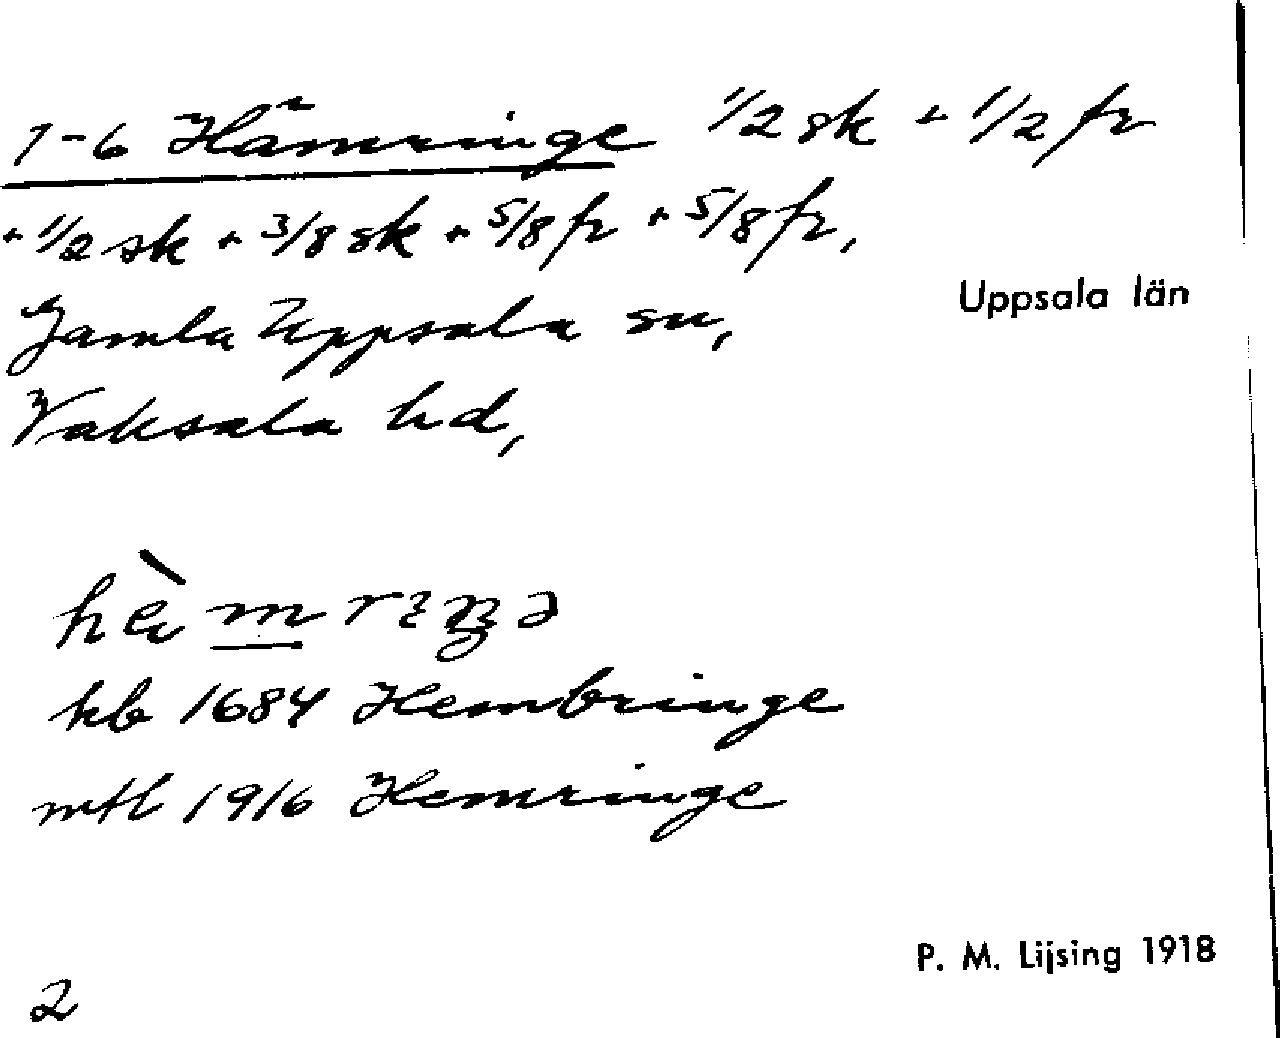 1-6 Hämringe 1/2 sk + 1/2 fr
+ 1/2 sk + 3/8 sk + 5/8 fr + 5/8 fr,
Uppsala län
Gamla Uppsala sn,
Vaksala hd,
kb 1684 Hembringe
mtl 1916 Hemringe
P. M. Lijsing 1918
2